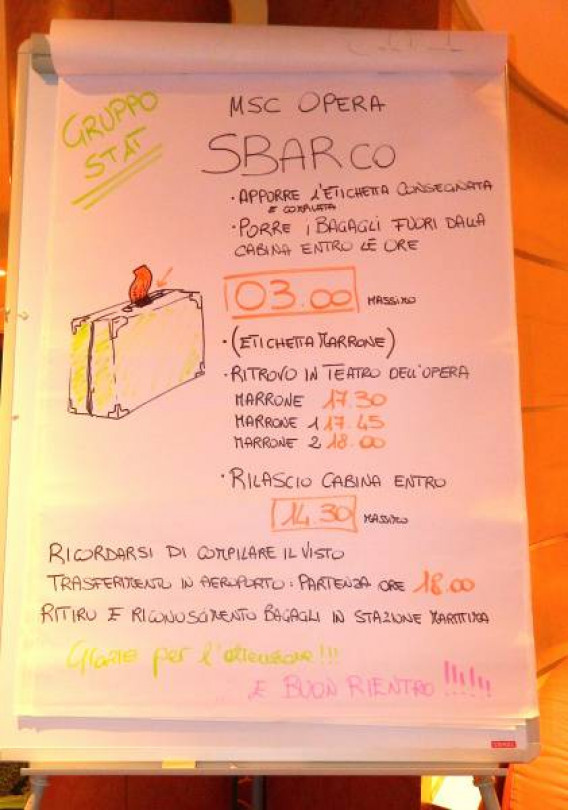 GRUPPO
STAT
MSC OPERA
SBARCO
• APPORRE L'ETICHETTA CONSEGNATA
E COMPILATA
• PORRE I BAGAGLI FUORI DALLA
CABINA ENTRO LE ORE
03.00 MASSIMO
• (ETICHETTA MARRONE)
• RITROVO IN TEATRO DELL'OPERA
MARRONE 17.30
MARRONE 1 17.45
MARRONE 2 18.00
• RILASCIO CABINA ENTRO
14.30 MASSIMO
RICORDARSI DI COMPILARE IL VISTO
TRASFERIMENTI IN AEROPORTO: PARTENZA ORE 18.00
RITIRO E RICONOSCIMENTO BAGAGLI IN STAZIONE MARITTIMA
Grazie per l'attenzione!!!
E BUON RIENTRO!!!!!